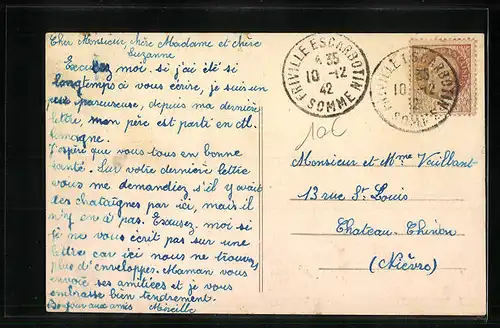 Cher Monsieur, chère Madame et chère
Suzanne
Excusez moi si j'ai été si
longtemps à vous écrire, je suis un
peu paresseuse, depuis ma dernière
lettre, mon père est parti en Al
lemagne.
J'espère que vous tous en bonne
santé. Sur votre dernière lettre
vous me demandiez s'il y avait
les chataignes par ici, mais il
n'y en a pas. Excusez-moi si
je ne vous écrit pas sur une
lettre car ici nous ne trouvons
plus d'enveloppes. Maman vous
envoie ses amitiées et je vous
embrasse bien tendrement.
Bonjour aux amis Mireille
FRIVILLE ESCARBOTIN
35
10-12
42
SOMME
FRIVILLE ESCARBOTIN
35
10-12
SOMME
10C
Monsieur et Mme Vaillant
13 rue St Louis
Chateau-Chinon
(Nièvre)